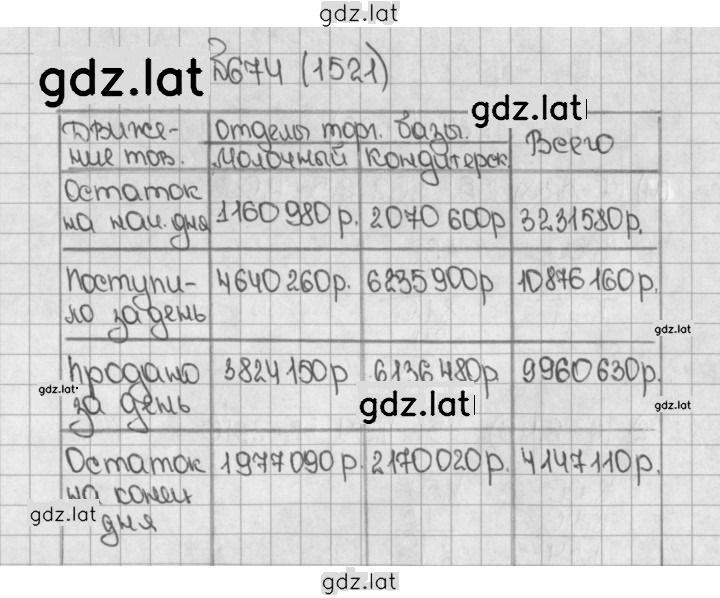 gdz.lat
№674 (1521)
gdz.lat
gdz.lat
Движе-
ние тов.
Отделы торг. базы.
Всего
Молочный Кондитерск.
Остаток
на нач. дня 1160 980 р. 2070 600р 3231580р.
Поступи-
ло за день 4640 260р. 6235900р 10876 160р.
gdz.lat
Продано
за день 3824 150р 6136 480р 9960 630р.
gdz.lat
gdz.lat
gdz.lat
Остаток
на конец
дня 1977 090 р. 2170 020 р. 4147110р.
gdz.lat
gdz.lat